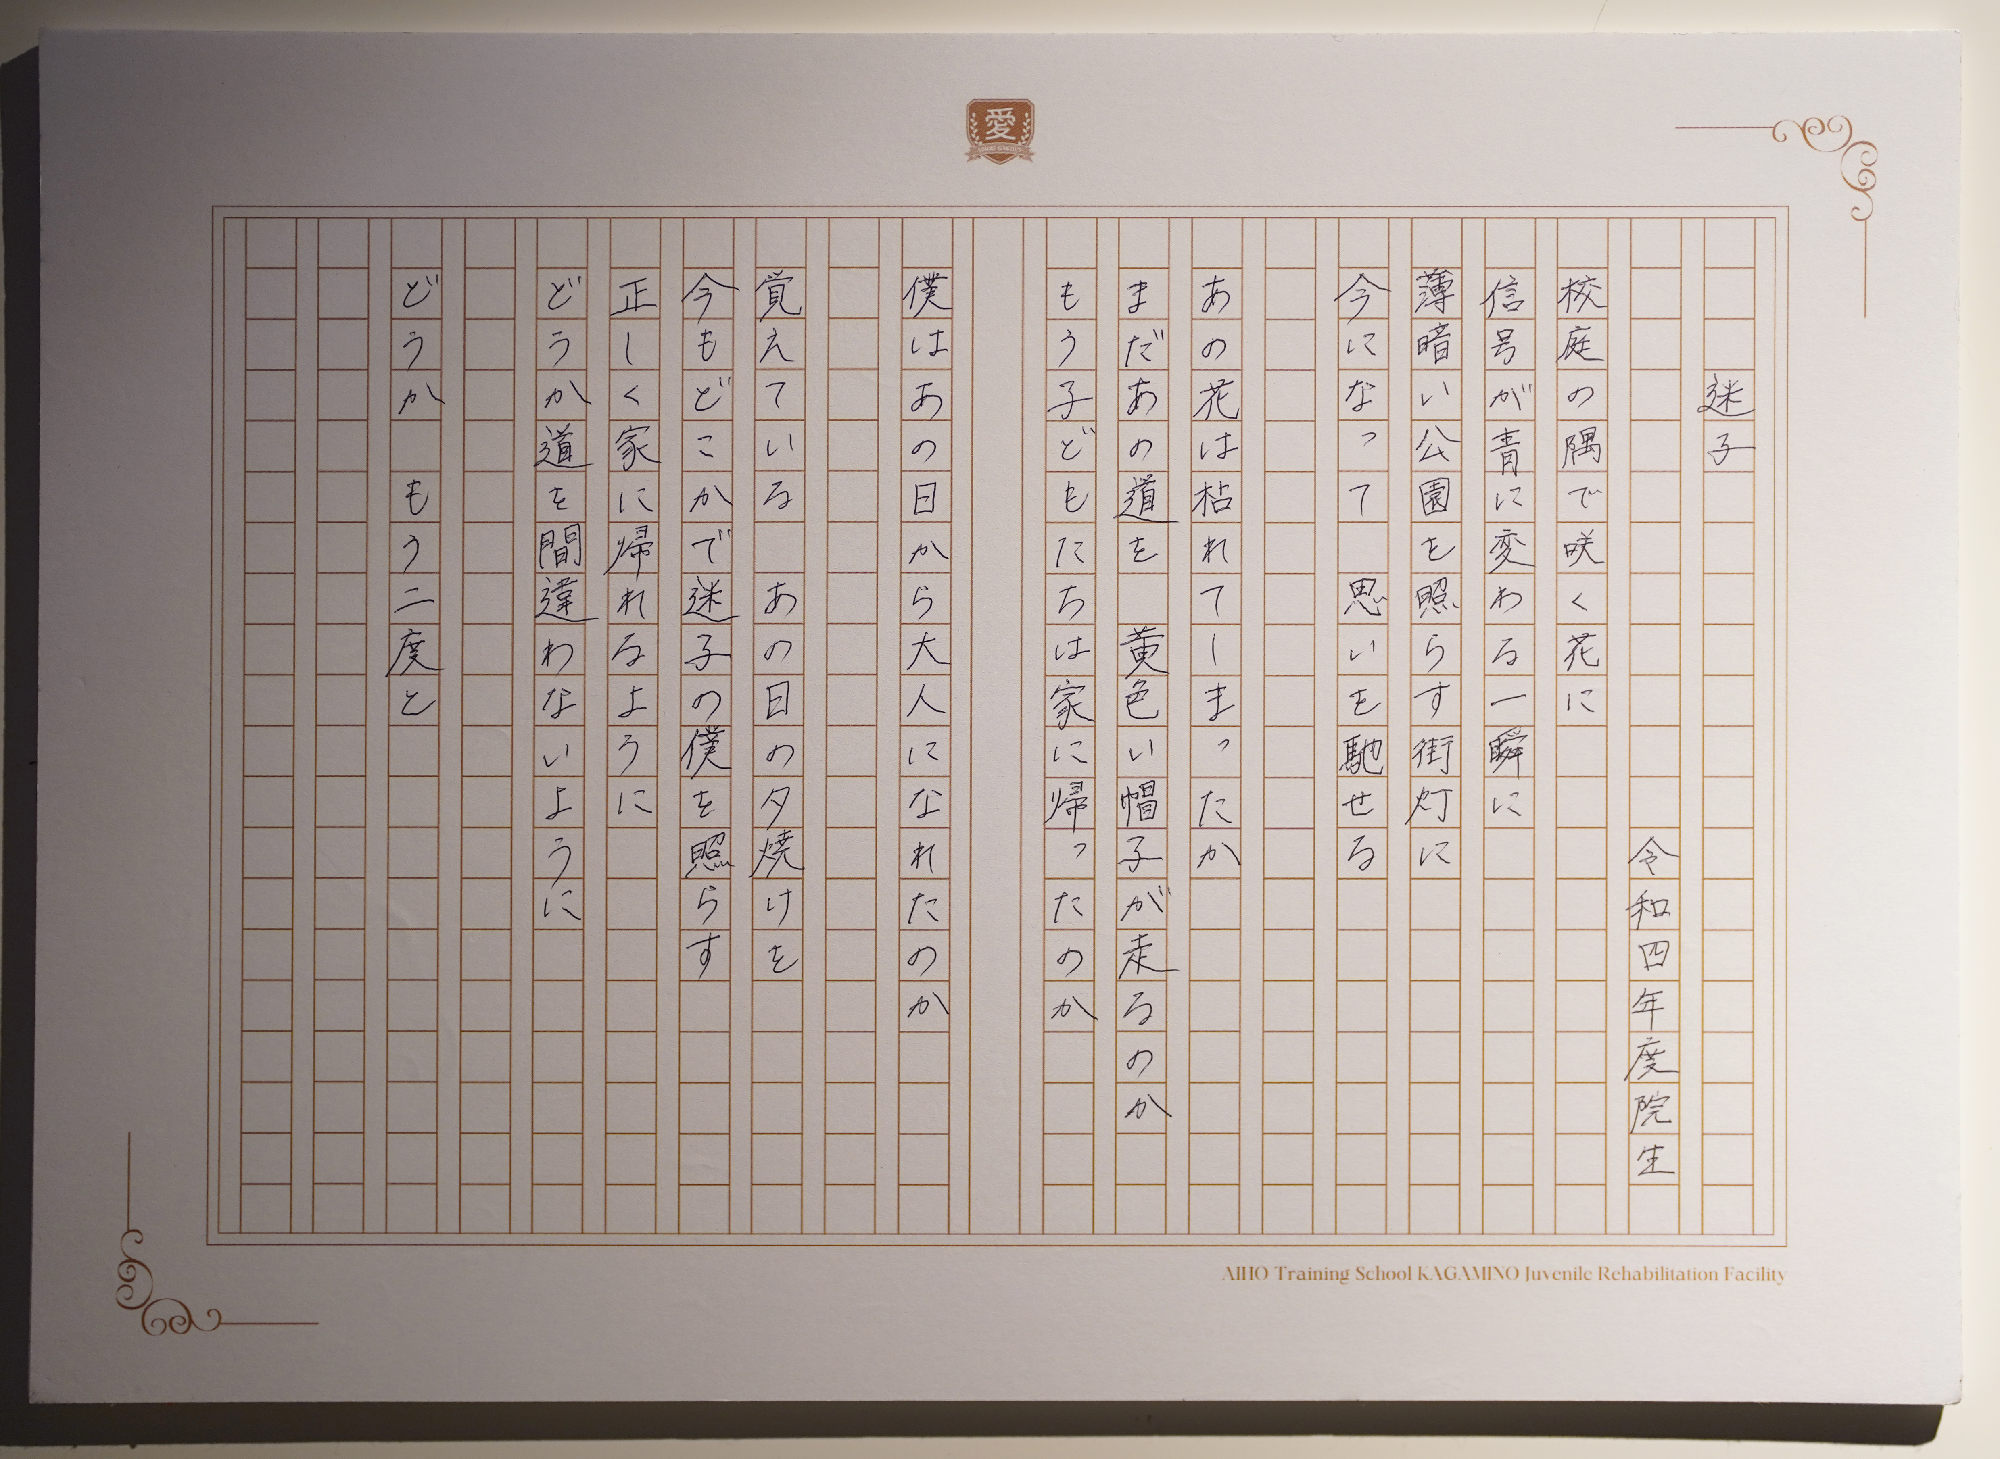 愛
迷子
令和四年度院生
校庭の隅で咲く花に
信号が青に変わる一瞬に
薄暗い公園を照らす街灯に
今になって　思いを馳せる
あの花は枯れてしまったか
まだあの道を　黄色い帽子が走るのか
もう子どもたちは家に帰ったのか
僕はあの日から大人になれたのか
覚えている　あの日の夕焼けを
今もどこかで迷子の僕を照らす
正しく家に帰れるように
どうか道を間違わないように
どうか　もう二度と
AIHO Training School KAGAMINO Juvenile Rehabilitation Facility